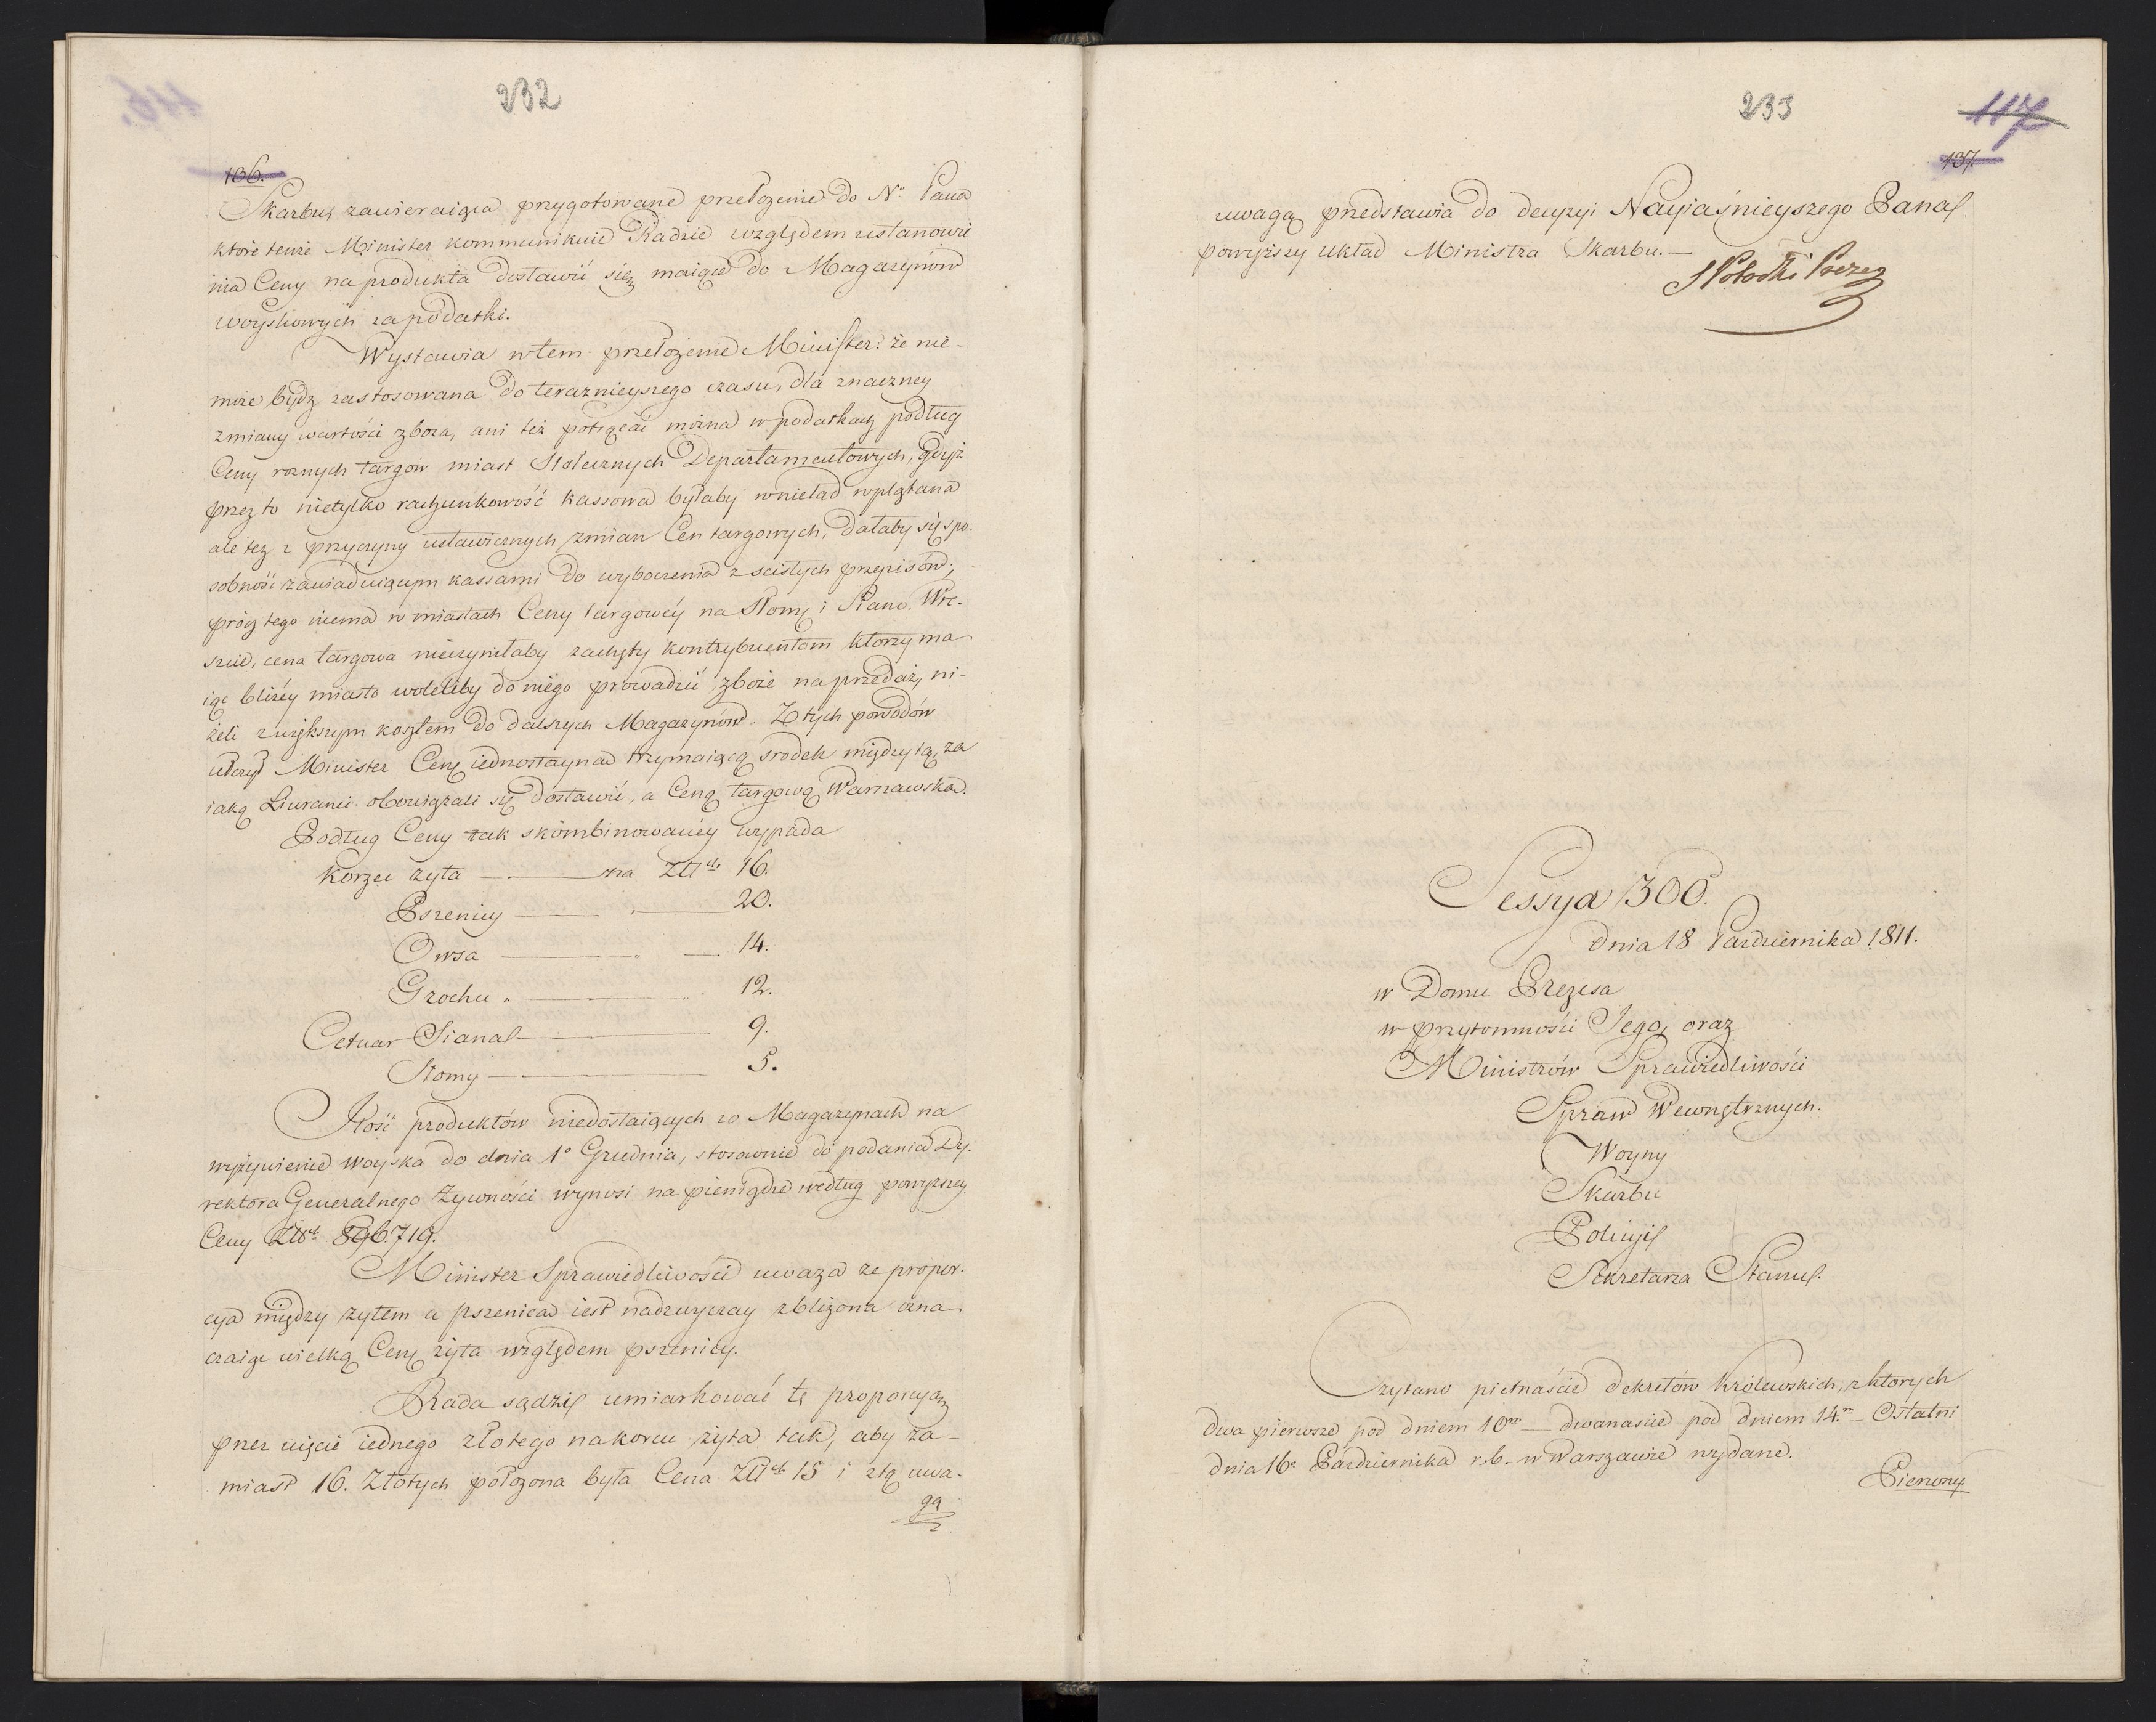 232
136.
Skarbu, zawieraiąca przygotowane przełożenie do N° Pana
ktore tenże Minister kommunikuie Radzie względem ustanowie
nia Ceny na produkta dostawić się maiące do Magazynów
woyskowych za podatki.
Wystawia w tem przełożenie Minister: że nie-
może bydź zastosowana do teraznieyszego czasu, dla znaczney
zmiany wartości zboża, ani też potrącać można w podatkach podług
Ceny roznych targow miast Stołecznych Departamentowych, gdyż
przez to nietylko rachunkowość kassowa byłaby w nieład wplątana
ale też z przyczyny ustawicznych zmian Cen targowych, dałaby się spo-
sobność zawiaduiącym kassami do wyboczenia z scisłych przepisów;
prócz tego niema w miastach Ceny targowéy na Słomę i Siano. Wre-
szcie, cena targowa nieczyniłaby zachęty kontrybuentom ktorzy ma
iąc bliżéy miasto woleliby do niego prowadzić zboże na przedaż, ni-
żeli z większym kosztem do dalszych Magazynów. Z tych powodów
ułożył Minister Cenę iednostayną trzymaiącą srodek między tą, za
iaką Liwranci obowiązali się dostawić, a Ceną targową Warszawską.
Podług Ceny tak skombinowanéy wypada
Korzec żyta — na Złł 16.
Pszenicy — 20.
Owsa — 14.
Grochu — 12.
Cetnar Siana — 9.
Słomy — 5.
Ilość produktów niedostaiących w Magazynach na
wyżywienie woyska do dnia 1° Grudnia, stosownie do podania Dy-
rektora Generalnego Żywności wynosi na pieniądze według powyższey
Ceny Złł 896.719.
Minister Sprawiedliwości uważa ze propor-
cya między żytem a pszenica iest nadzwyczay zbliżona ozna-
czaiąc wielką Cenę żyta względem pszenicy.
Rada sądzi umiarkować tę proporcyą
przez uięcie iednego złotego na korcu żyta tak, aby za-
miast 16. Złotych położona była Cena Złł 15 i z tą uwa-
gą
233
117
137.
uwagą przedstawia do decyzyi Nayiaśnieyszego Pana
powyższy układ Ministra Skarbu.—
S Potocki Prezes
Sessya 300.
Dnia 18 Pazdziernika 1811.
w Domu Prezesa
w przytomności Jego, oraz
Ministrów Sprawiedliwości
Spraw Wewnętrznych.
Woyny
Skarbu
Policyi
Sekretarza Stanu.
Czytano piętnaście dekretów Królewskich, z ktorych
dwa pierwsze pod dniem 10m — dwanascie pod dniem 14m — Ostatni
dnia 16° Pazdziernika r.b. w Warszawie wydane.
Pierwszy